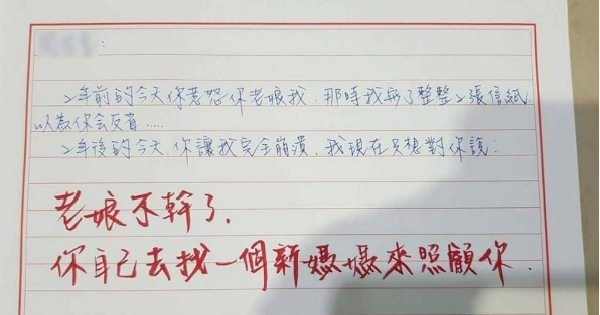 :
2年前的今天你惹怒你老娘我,那時我寫了整整2張信紙,
以為你會反省.....
2年後的今天,你讓我完全崩潰,我現在只想對你說:
老娘不幹了.
你自己去找一個新媽媽來照顧你.